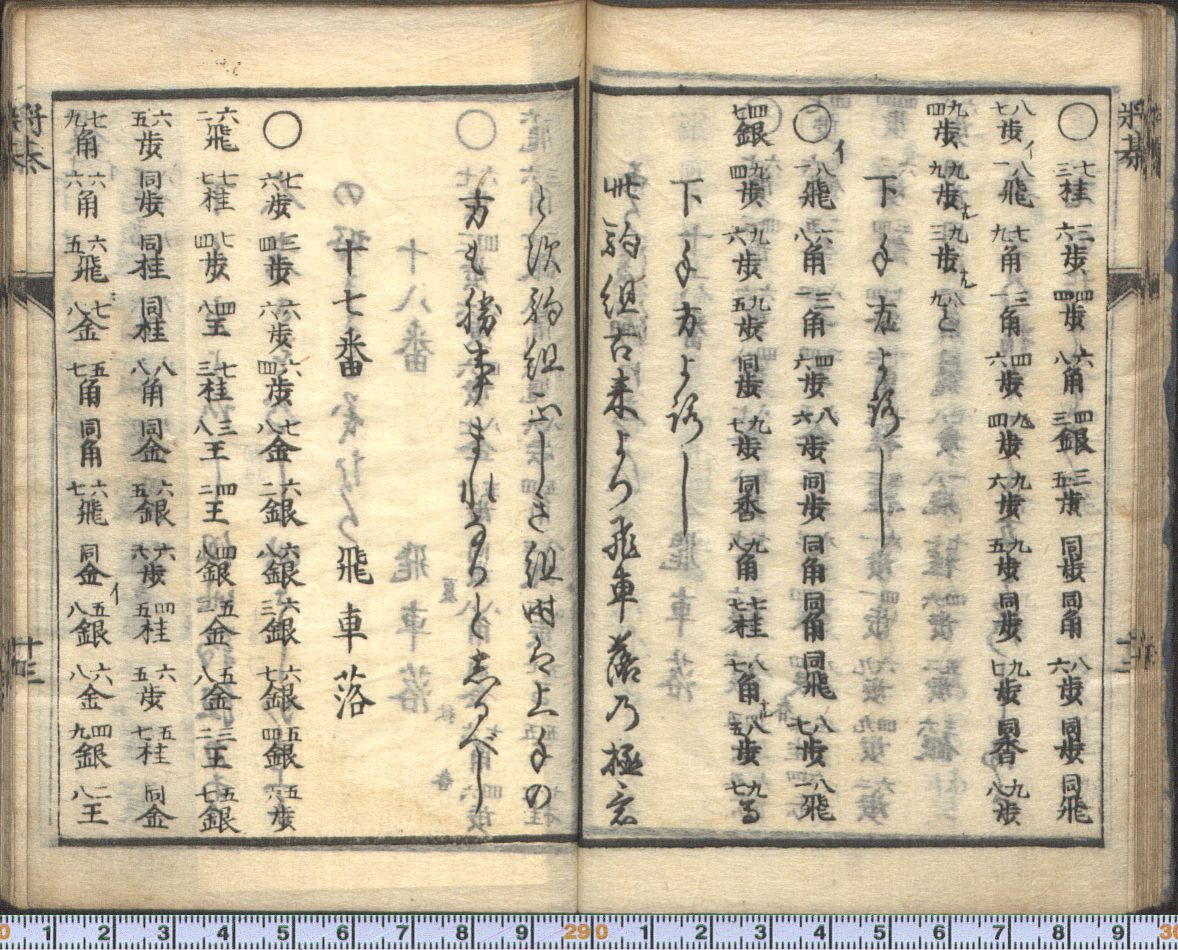 将棊 十三
○ 七三桂 三六歩 四四歩 六八角 四三銀 三五歩 同歩 同角 八六歩 同歩 同飛
八七歩 イ 八一飛 七九角 三一角 四六歩 九四歩 九六歩 九五歩 同歩 九七歩 同香 九八歩
九四歩 九九歩ナル 九三歩ナル 八九と
下手方よろし
○ イ 八一飛 六八角 三一角 四六歩 八六歩 同歩 同角 同角 同飛 八七歩 八一飛
四七銀 九四歩 九六歩 九五歩 同歩 九七歩 同香 九八角 七七桂 八七角ナル 八五歩 九七馬
下手方よろし
此駒組古来より飛車落乃極意
と次駒組正しき組時は上手の
方も勝事まれなりとしるべし
十七番 飛車落
○ 七六歩 三四歩 六六歩 六四歩 七八金 六二銀 六八銀 六三銀 六七銀 五四銀 五六歩
六二飛 七七桂 七四歩 四八王 七三桂 三八王 四二王 四八銀 五金 五八金 三二王 五七銀
六五歩 同歩 同桂 同桂 八八角 同金 六五銀 六六歩 四五桂 六五歩 五七桂 同金
七九角 六六角 六五飛 七八金 五七角 同角 六七飛 同金 イ 五八銀 六八金 四九銀 二八王
将棊 十三